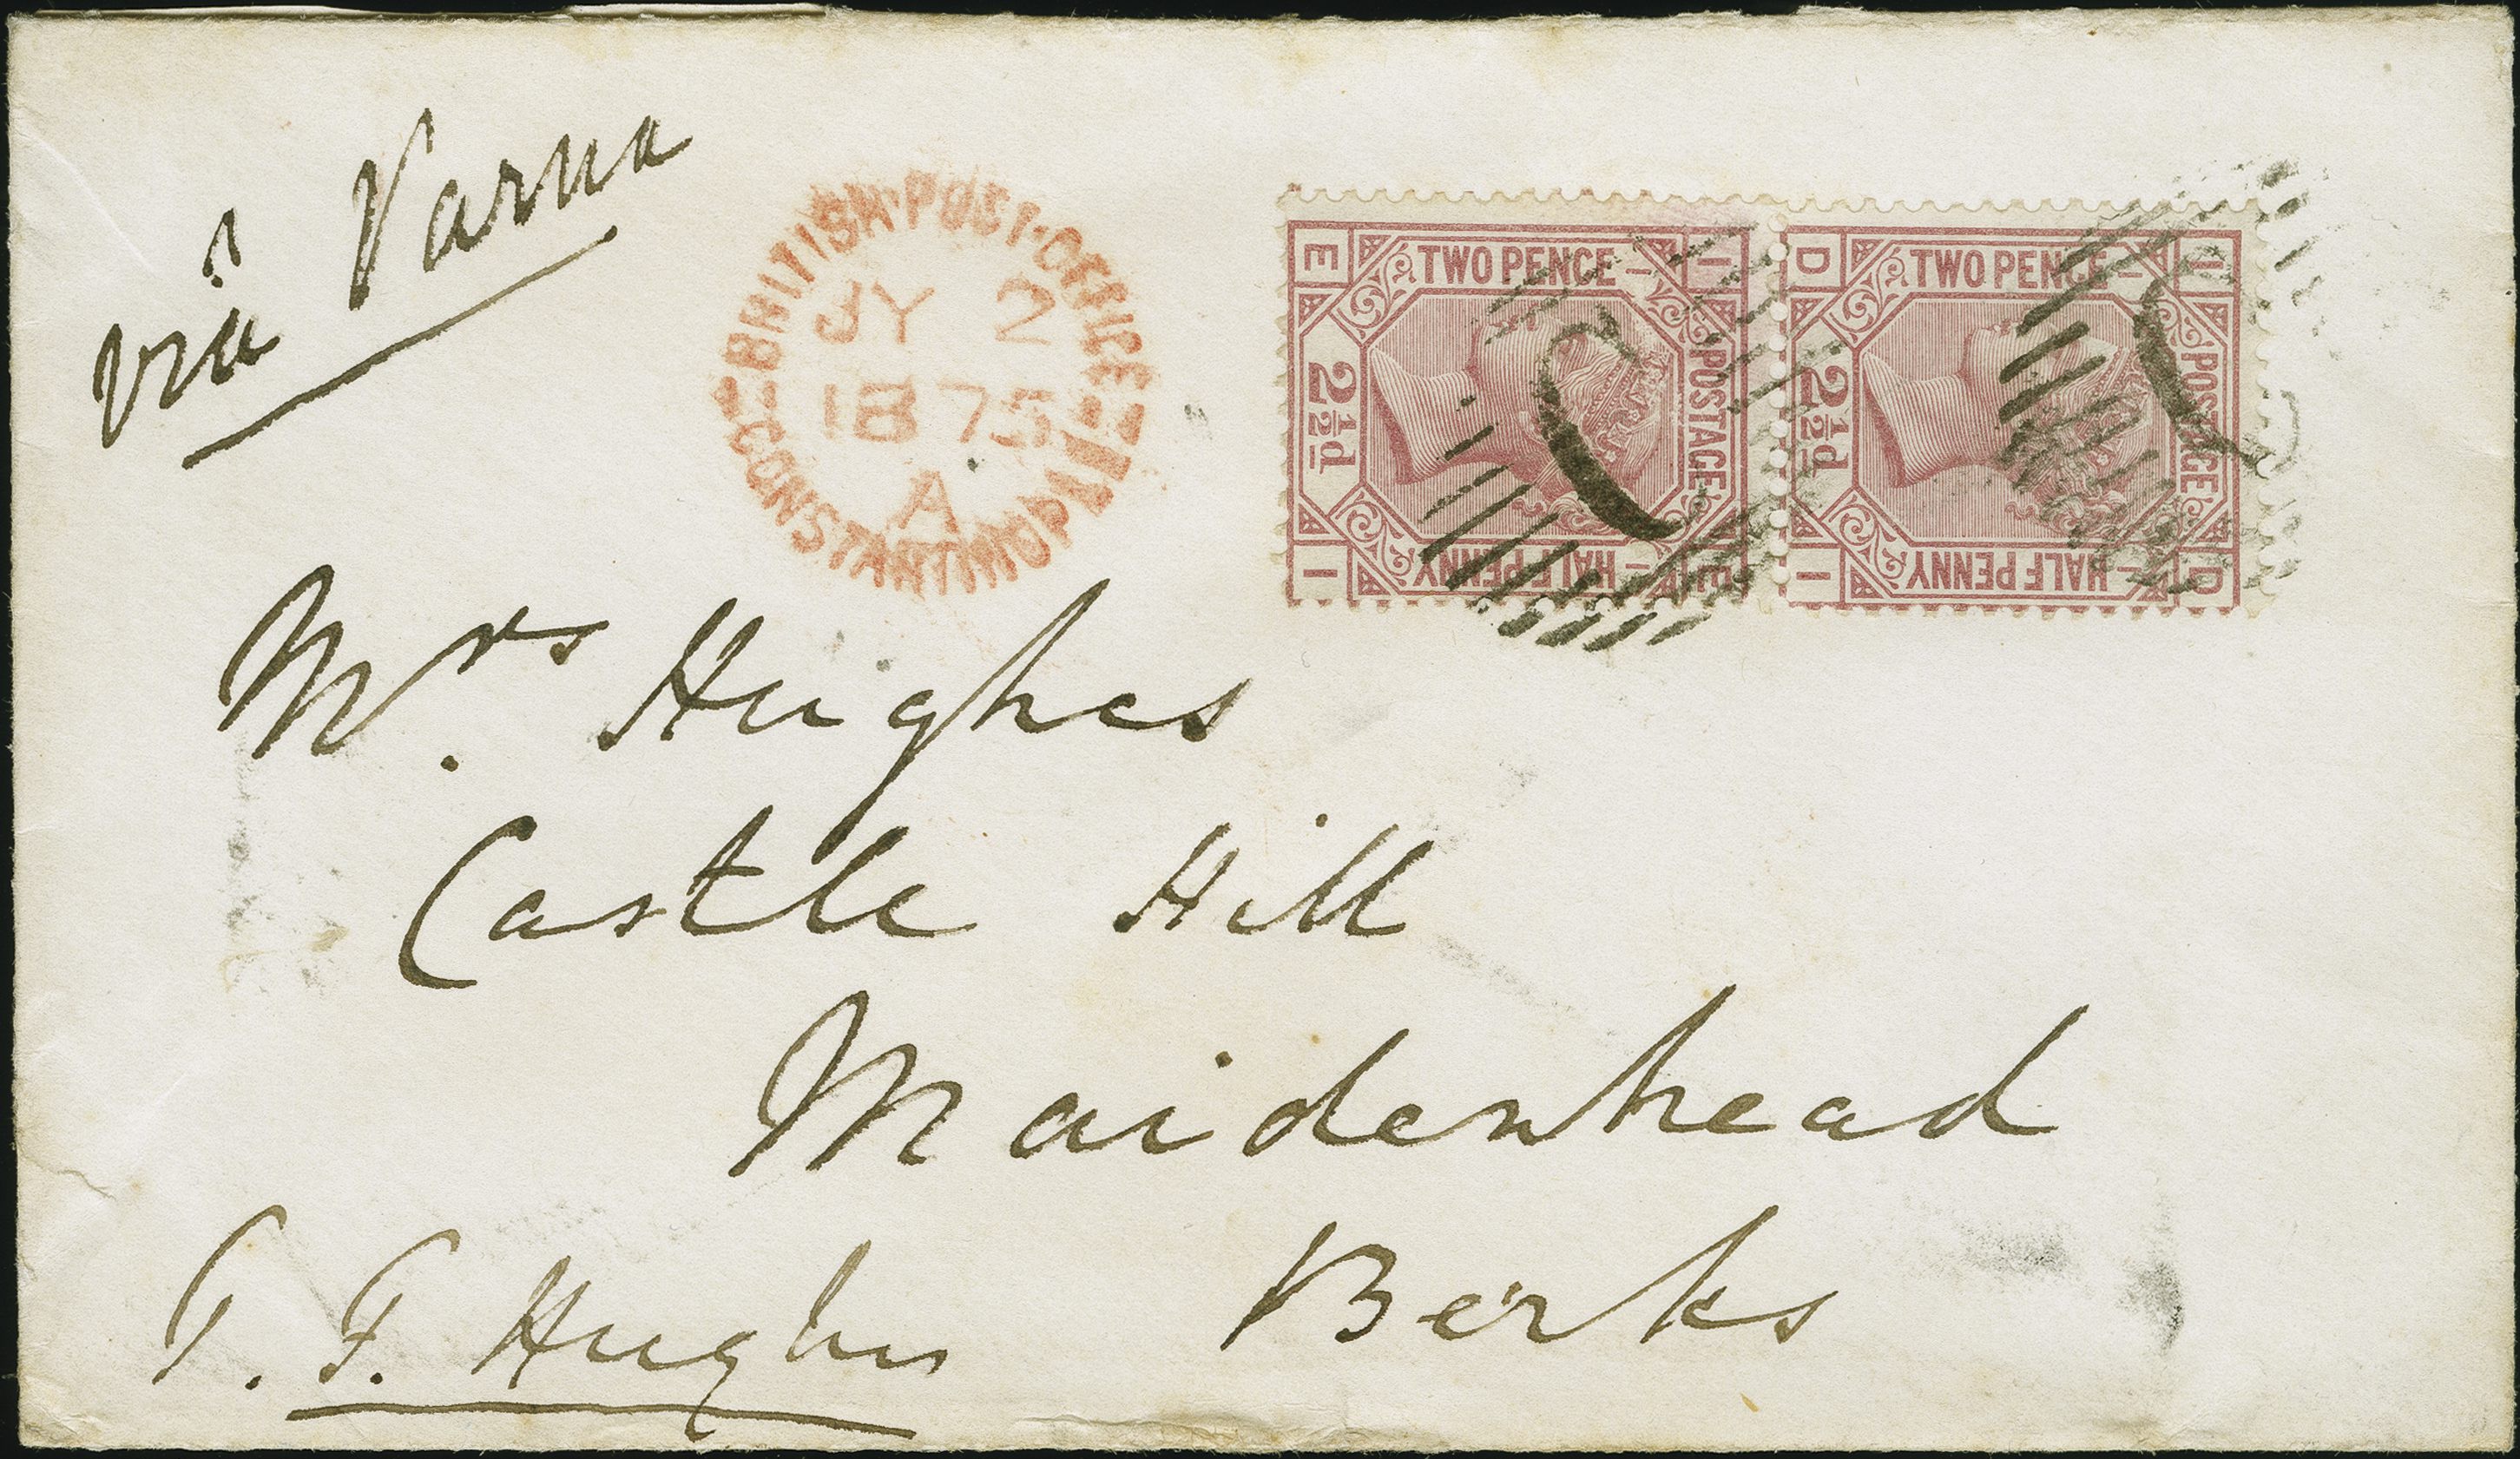 via Varna
BRITISH·POST·OFFICE
JY 2
1875
A
CONSTANTINOPLE
E TWO PENCE I
2½d
POSTAGE
I HALFPENNY E
D TWO PENCE I
2½d
POSTAGE
I HALFPENNY D
C
Mrs. Hughes
Castle Hill
Maidenhead
Berks
T. F. Hughes